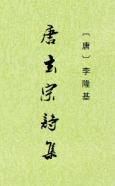 〔唐〕李隆基
唐玄宗詩集